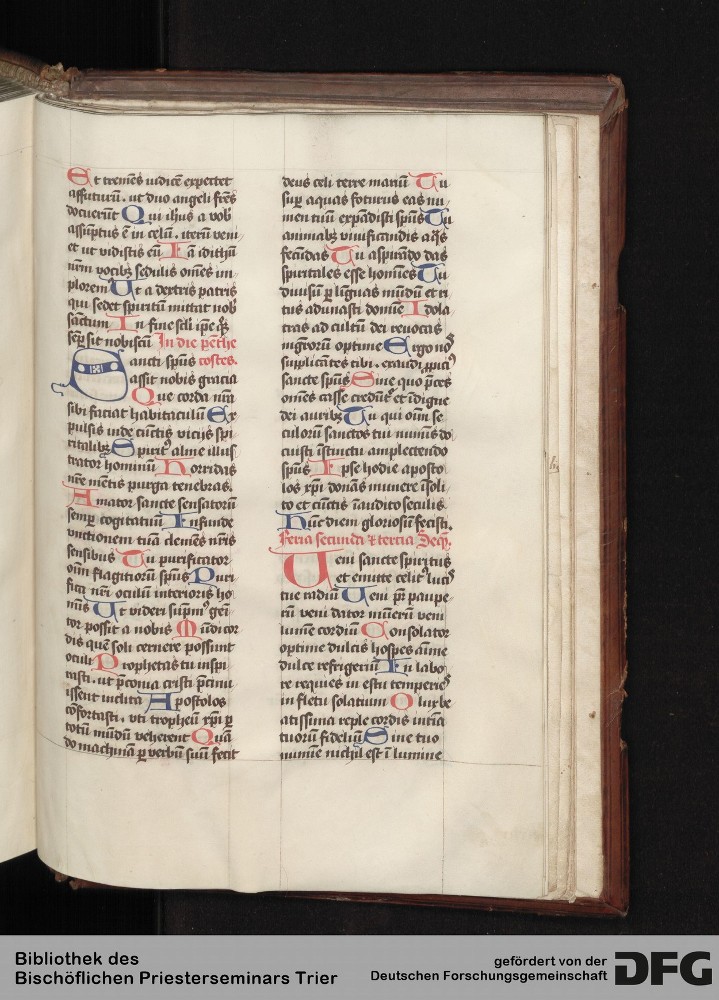 Et tremēs iudicē expectet
affuturū. ut duo angeli frēs
docuerūt Qui ihus a vob
assūptus ē in celū. iterū veni
et ut vidistis eū Ea idithū
nrm vocibꝫ sedulis omēs im
plorem Ut a dextris patris
qui sedet spiritū mittat nob
sanctum In fine scli ipe qꝫ
semp sit nobiscū In die pēthe
costes.
Sancti spūs
assit nobis gracia
Que corda nrā
sibi faciat habitaculū Ex
pulsis inde cūctis vicijs spi
ritalibꝫ Spiritꝰ alme illus
trator hominū Horridas
nrē mētis purga tenebras.
Amator sancte sensatorū
semp cogitatuū Infunde
unctionem tuā clemēs nrīs
sensibus Tu purificator
oīm flagitiorū spūs Puri
fica nrī oculū interioris ho
mīs Ut videri supmꝰ geni
tor possit a nobis Mūdi cor
dis quē soli cernere possunt
oculi Prophetas tu inspi
rasti. ut pconia cristi pcinu
issent inclita Apostolos
cōfortasti. uti tropheū xpi p
totū mūdū veherent Quā
do machinā p verbū suū fecit
deus celi terre mariū Tu
sup aquas foturus eas nu
men tuū expādisti spūs Tu
animabꝫ vivificandis aqᵃs
fecūdas Tu aspirādo das
spiritales esse homīes Tu
divisū p linguas mūdū et ri
tus adunasti domīe Idola
tras ad cultū dei revocas
magrorū optime Ergo noˢ
suplicātes tibi. exaudi ppiciꝰ
sancte spūs Sine quo pces
omēs casse credūtᵘʳ et īdigne
dei auribꝫ Tu qui oīm se
culorū sanctos tui numīs do
cuisti īstinctu amplectendo
spūs Ipse hodie aposto
los xpi donās munere īsoli
to et cūctis īaudito seculis
Hūc diem gloriosū fecisti.
Feria secunda et tercia Seqᵃ.
Veni sancte spiritus
et emitte celitꝰ lucˢ
tue radiū Veni pr paupe
rū veni dator munerū veni
lumē cordiū Consolator
optime dulcis hospes aīme
dulce refrigeriū In labo
re requies in estu temperieˢ
in fletu solatium O lux be
atissima reple cordis intīa
tuorū fideliū Sine tuo
numīe nichil est ī lumine
Bibliothek des
Bischöflichen Priesterseminars Trier
gefördert von der
Deutschen Forschungsgemeinschaft
DFG